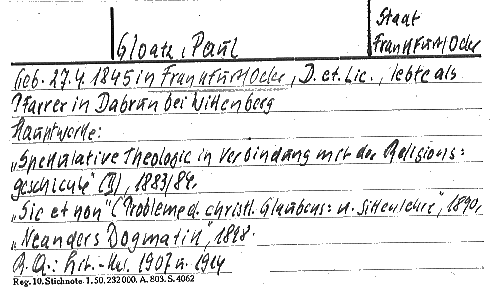 Staat
Gloatz, Paul Frankfurt/Oder
Geb. 27.4.1845 in Frankfurt/Oder, D. et. Lic., lebte als
Pfarrer in Dabrun bei Wittenberg
Hauptwerke:
„Spekulative Theologie in Verbindung mit der Religions=
geschichte" (I), 1883/84.
„Sic et non" (Probleme d. christl. Glaubens= u. Sittenlehre", 1890.
„Neanders Dogmatik", 1898.
B.Q.: Lit.- 1907 u. 1914
Reg. 10. Stichnote. 1. 50. 232000. A. 803. S. 4062